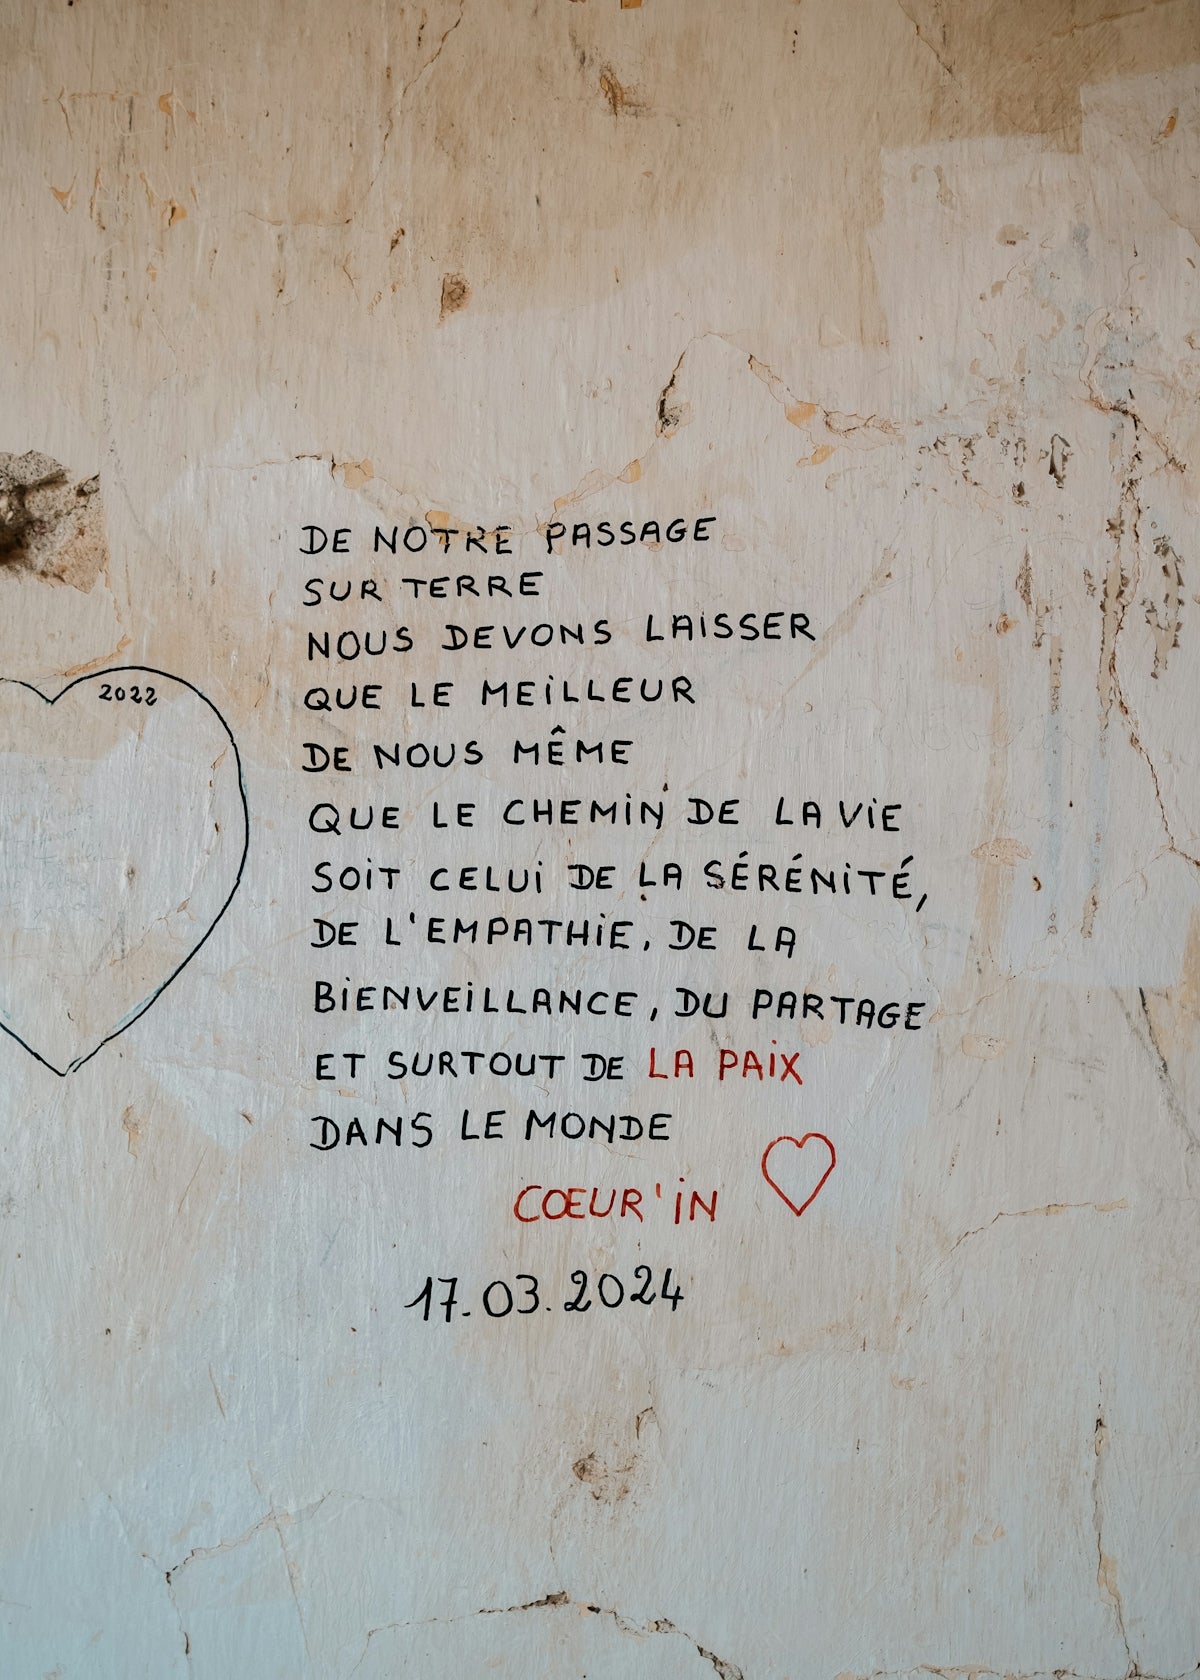 2022
DE NOTRE PASSAGE
SUR TERRE
NOUS DEVONS LAiSSER
QUE LE MEiLLEUR
DE NOUS MÊME
QUE LE CHEMiN DE LA ViE
SOiT CELUi DE LA SÉRÉNiTÉ,
DE L'EMPATHiE, DE LA
BiENVEiLLANCE, DU PARTAGE
ET SURTOUT DE LA PAiX
DANS LE MONDE
CŒUR'iN
17.03.2024